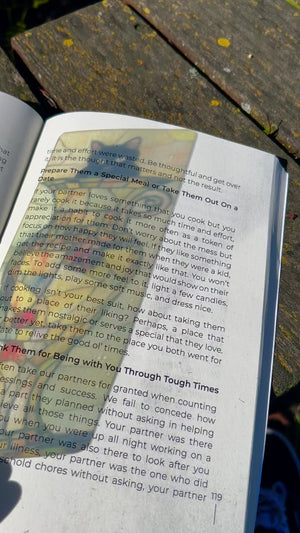 time and effort were wasted. Be thoughtful and get over
it. It is the thought that matters and not the result.
Prepare Them a Special Meal or Take Them Out On a
Date
your partner loves something that you cook but you
rarely cook it because it takes so much time and effort,
make it a habit to cook it more often as a token of
appreciation for them. Don't worry about the mess but
focus on how happy they will feel. If they like something
that their mother made for them when they were a kid,
get the recipe and make it exactly like that. You won't
believe the amazement and joy that would show on their
faces. To add some more feel to it, light a few candles,
dim the lights, play some soft music, and dress nice.
if cooking isn't your best suit, how about taking them
out to a place of their liking? Perhaps, a place that
makes them nostalgic or serves a special that they love.
better yet, take them to the place you both went for
date to relive the good ol' times
Them for Being with You Through Tough Times
often take our partners for granted when counting
blessings and success. We fail to concede how
a part they planned without asking in helping
those things. Your partner was there
when you were up all night working on a
Your partner was also there to look after you
illness, your partner was the one who did
household chores without asking, your partner
119